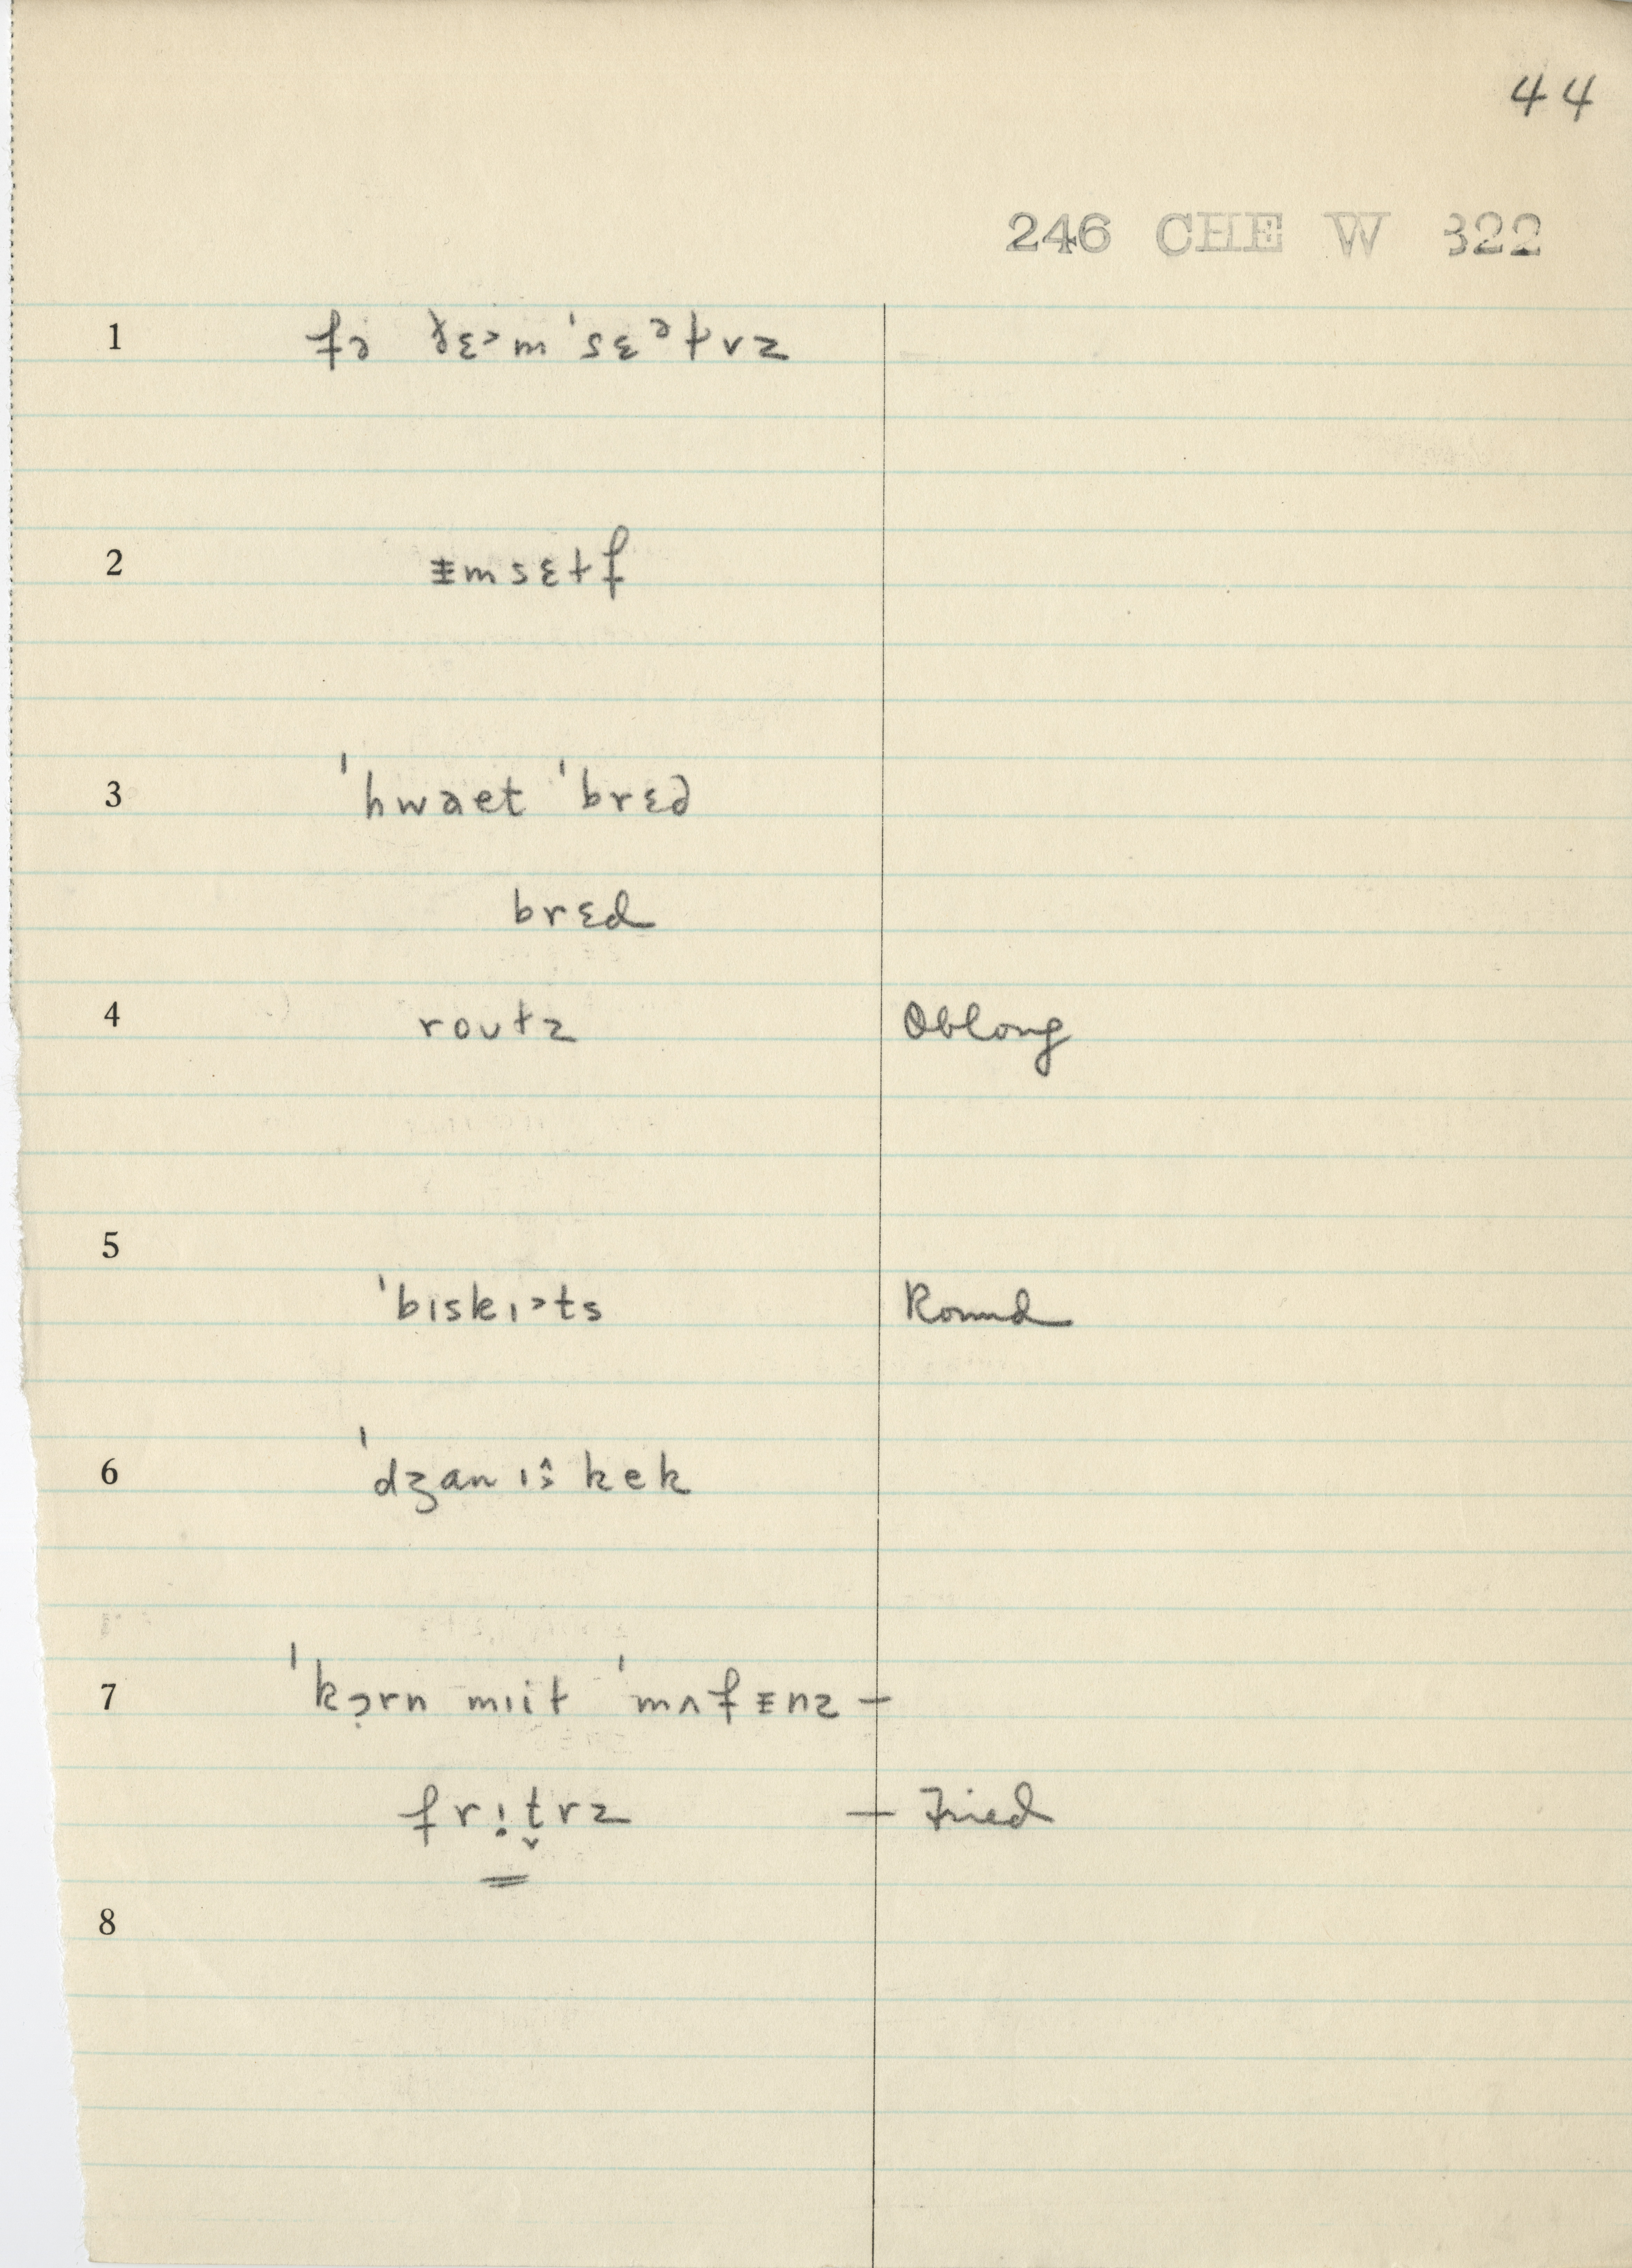 44
246 CHE W 322
1 fɔ ðɛ˃m ˈsɛᵊtvz
2 ᵻmsɛtf
3 ˈhwaet ˈbrɛd
brɛd
4 routz Oblong
5
ˈbɪskɪ˃ts Round
6 ˈdʒanɪ kek
7 ˈkɔ̣rn mɪit ˈmʌfɪnz —
frɪṭrz — Fried
8